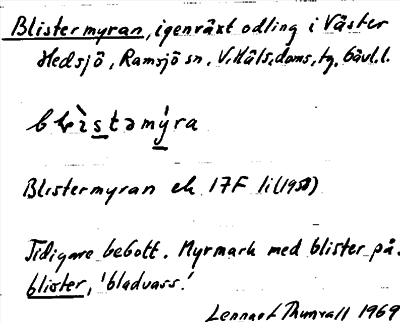 Blistermyran, igenväxt odling i Väster
Hedsjö, Ramsjö sn, V. Häls. doms. tg, Gävl. l.
Blistermyran ek 17F 1i (1958)
Tidigare bebott. Myrmark med blister på.
blister, 'bladvass'.
Lennart Thunvall 1969